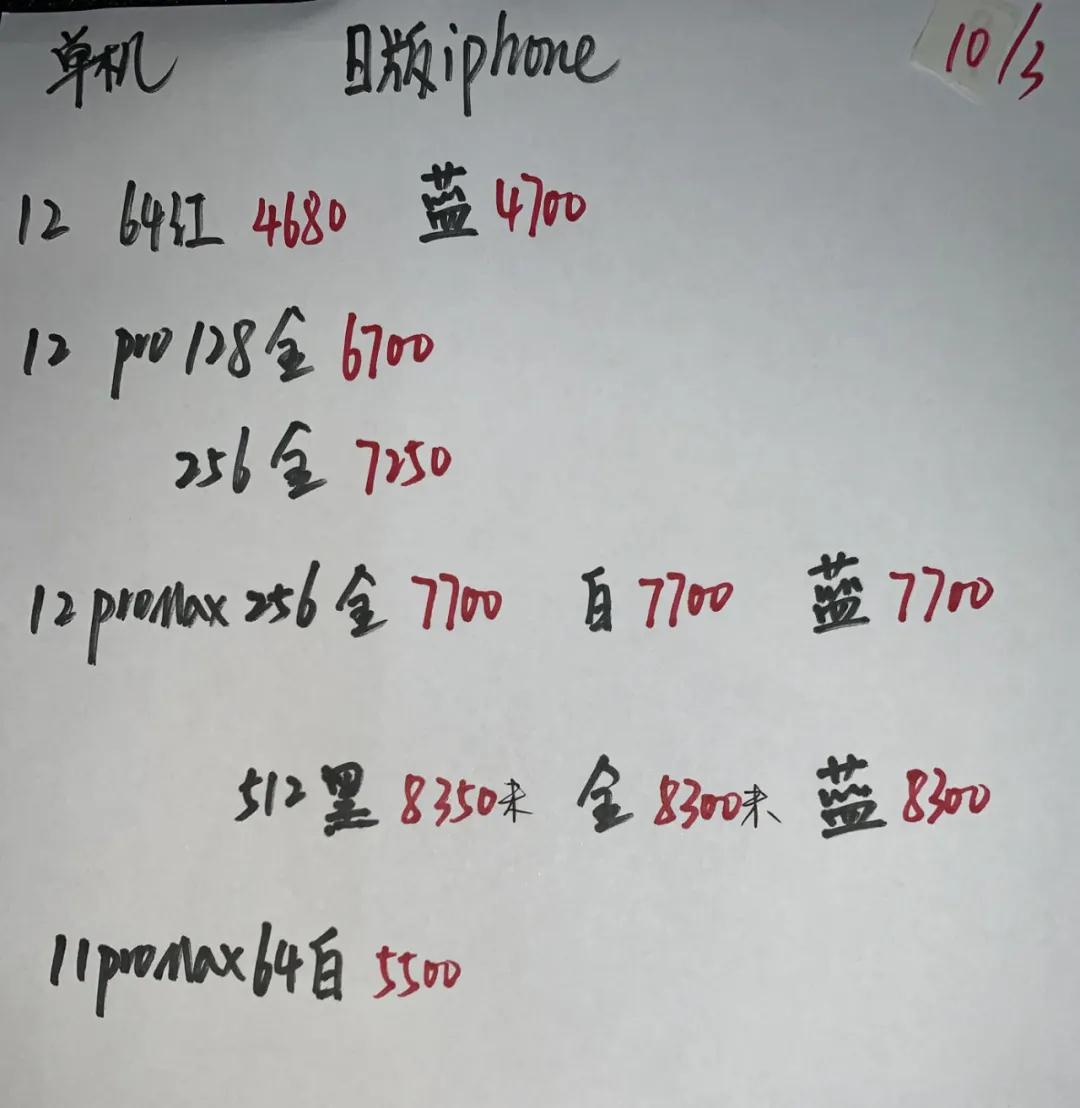 单机 日版iphone 10/3
12 64红 4680 蓝 4700
12 pro 128金 6700
256金 7250
12proMax 256金 7700 白 7700 蓝 7700
512黑 8350未 金 8300未 蓝 8300
11proMax64白 5500